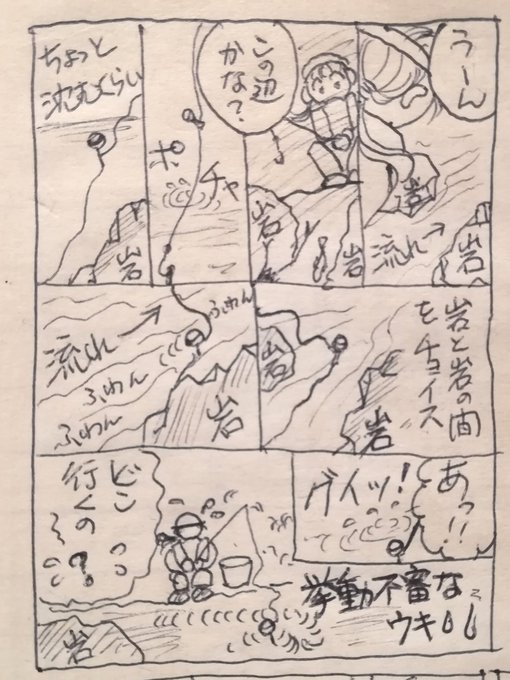 うーん
岩
流れ
岩
この辺
かな？
岩
岩
ポ
チャ
岩
ちょっと
沈むくらい
岩
岩と岩の間
をチョイス
岩
岩
ふわん
流れ
ふわん
ふわん
岩
あっ!!
グイッ!
挙動不審な
ウキ
どこ
行くの
〜?
岩